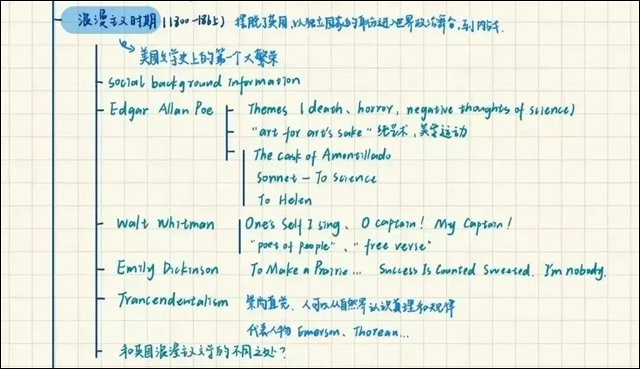 浪漫主义时期 (1800-1865) 摆脱了英国,以独立国家的身份进入世界政治舞台,到内战.
美国文学史上的第一个大繁荣
social background information
Edgar Allan Poe Themes (death、horror, negative thoughts of science)
"art for art's sake" 纯艺术,美学运动
The cask of Amontillado
Sonnet - To science
To Helen
Walt Whitman One's Self I sing、O captain! My Captain!
"poet of people"、"free verse"
Emily Dickinson To Make a Prairie... Success Is Counted Sweeted. I'm nobody.
Trancendentalism 崇尚直觉、人可以从自然界认识真理和规律
代表人物 Emerson、Thorean...
和英国浪漫主义文学的不同之处?